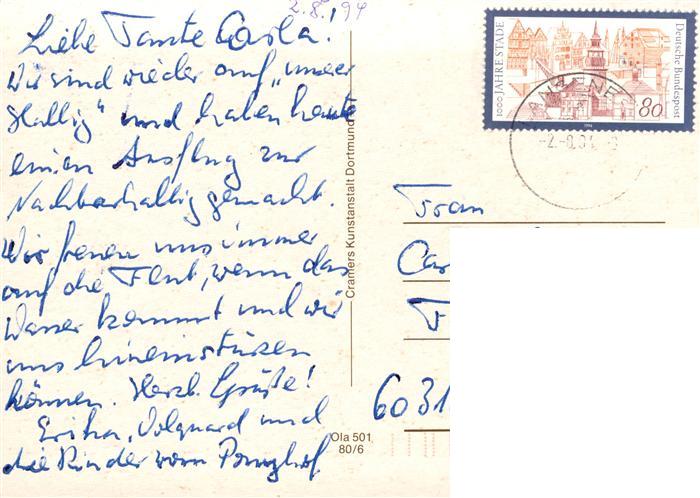 2.8.94
Liebe Tante Carla!
Wir sind wieder auf „unser
Hallig" und haben heute
einen Ausflug zur
Nachbarhallig gemacht.
Wir freuen uns immer
auf die Flut, wenn das
Wasser kommt und wir
uns hineinstürzen
können. Herzl. Grüße!
Erika, Volquard und
die Kinder vom
Cramers Kunstanstalt Dortmund
Ola 501
80/6
1000 JAHRE STADE
Deutsche Bundespost
80
1994
-2.-8.94
Frau
6031